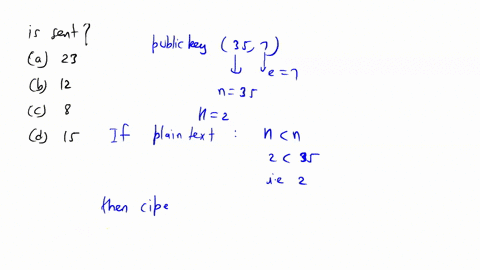 is sent?
(a) 23
(b) 12
(c) 8
(d) 15
public key (35, 7)
e = 7
n = 35
n = 2
If plain text : n < n
2 < 35
i.e 2
then cipe